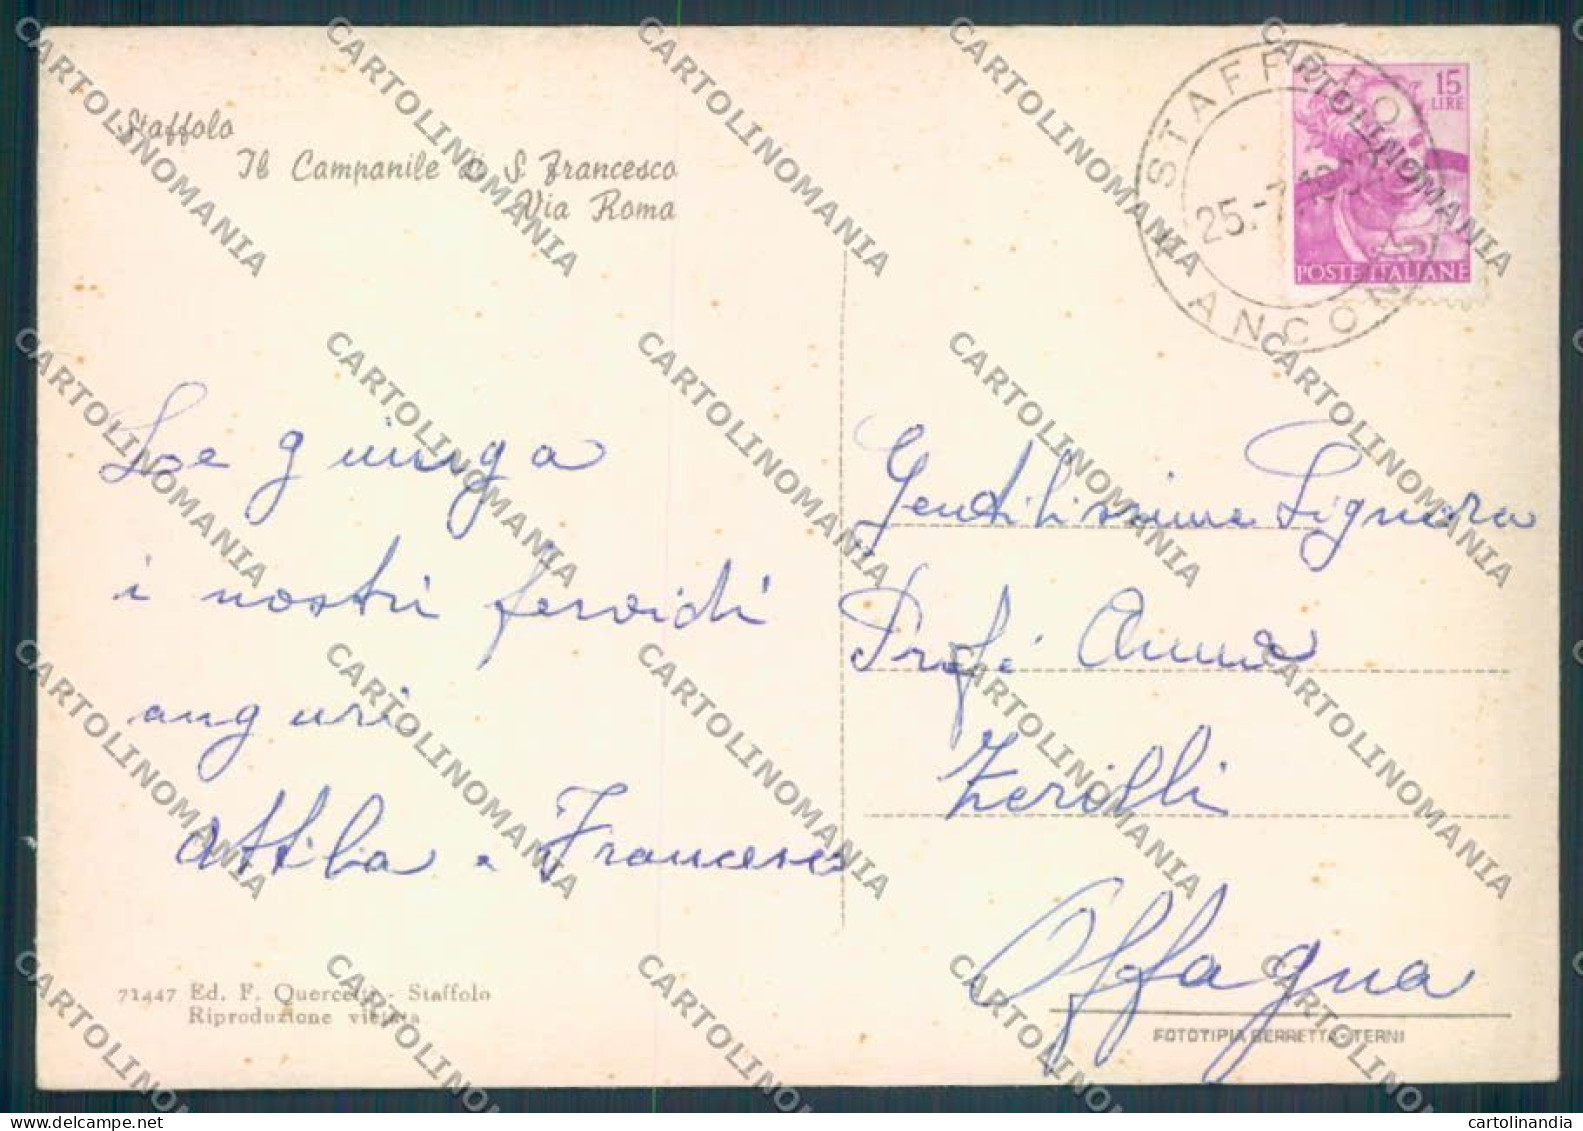 Staffolo
Il Campanile S. Francesco
Via Roma
STAFFOLO
25.-7.19
ANCONA
15
LIRE
POSTE ITALIANE
Le giunga
i nostri fervidi
auguri
Attilia e Francesco
Gentilissima Signora
Prof. Anna
Zerilli
Offagna
71447 Ed. F. Quercetti - Staffolo
Riproduzione vietata
FOTOTIPIA BERRETTA - TERNI
CARTOLINOMANIA
cartolinandia